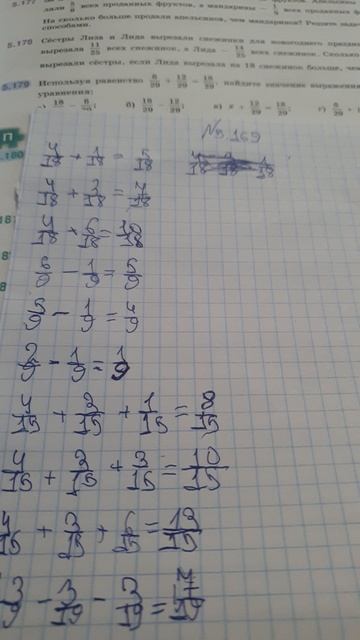 5.177
дали 5/8 всех проданных фруктов, а мандарины —
На сколько больше продали апельсинов, чем мандаринов? Решите
способами.
5.178 Сёстры Лиза и Лида вырезали снежинки для новогоднего
вырезала 11/25 всех снежинок, а Лида — 14/25 всех снежинок. Сколько
вырезали сёстры, если Лида вырезала на 18 снежинок больше, чем
5.179 Используя равенство 6/29 + 12/29 = 18/29, найдите значение выражения
уравнения:
П
№5.169
4/18 + 1/18 = 5/18
4/18 + 3/18 = 7/18
4/18 + 6/18 = 10/18
6/9 − 1/9 = 5/9
5/9 − 1/9 = 4/9
2/9 − 1/9 = 1/9
4/15 + 3/15 + 1/15 = 8/15
4/15 + 3/15 + 3/15 = 10/15
4/15 + 3/15 + 6/15 = 13/15